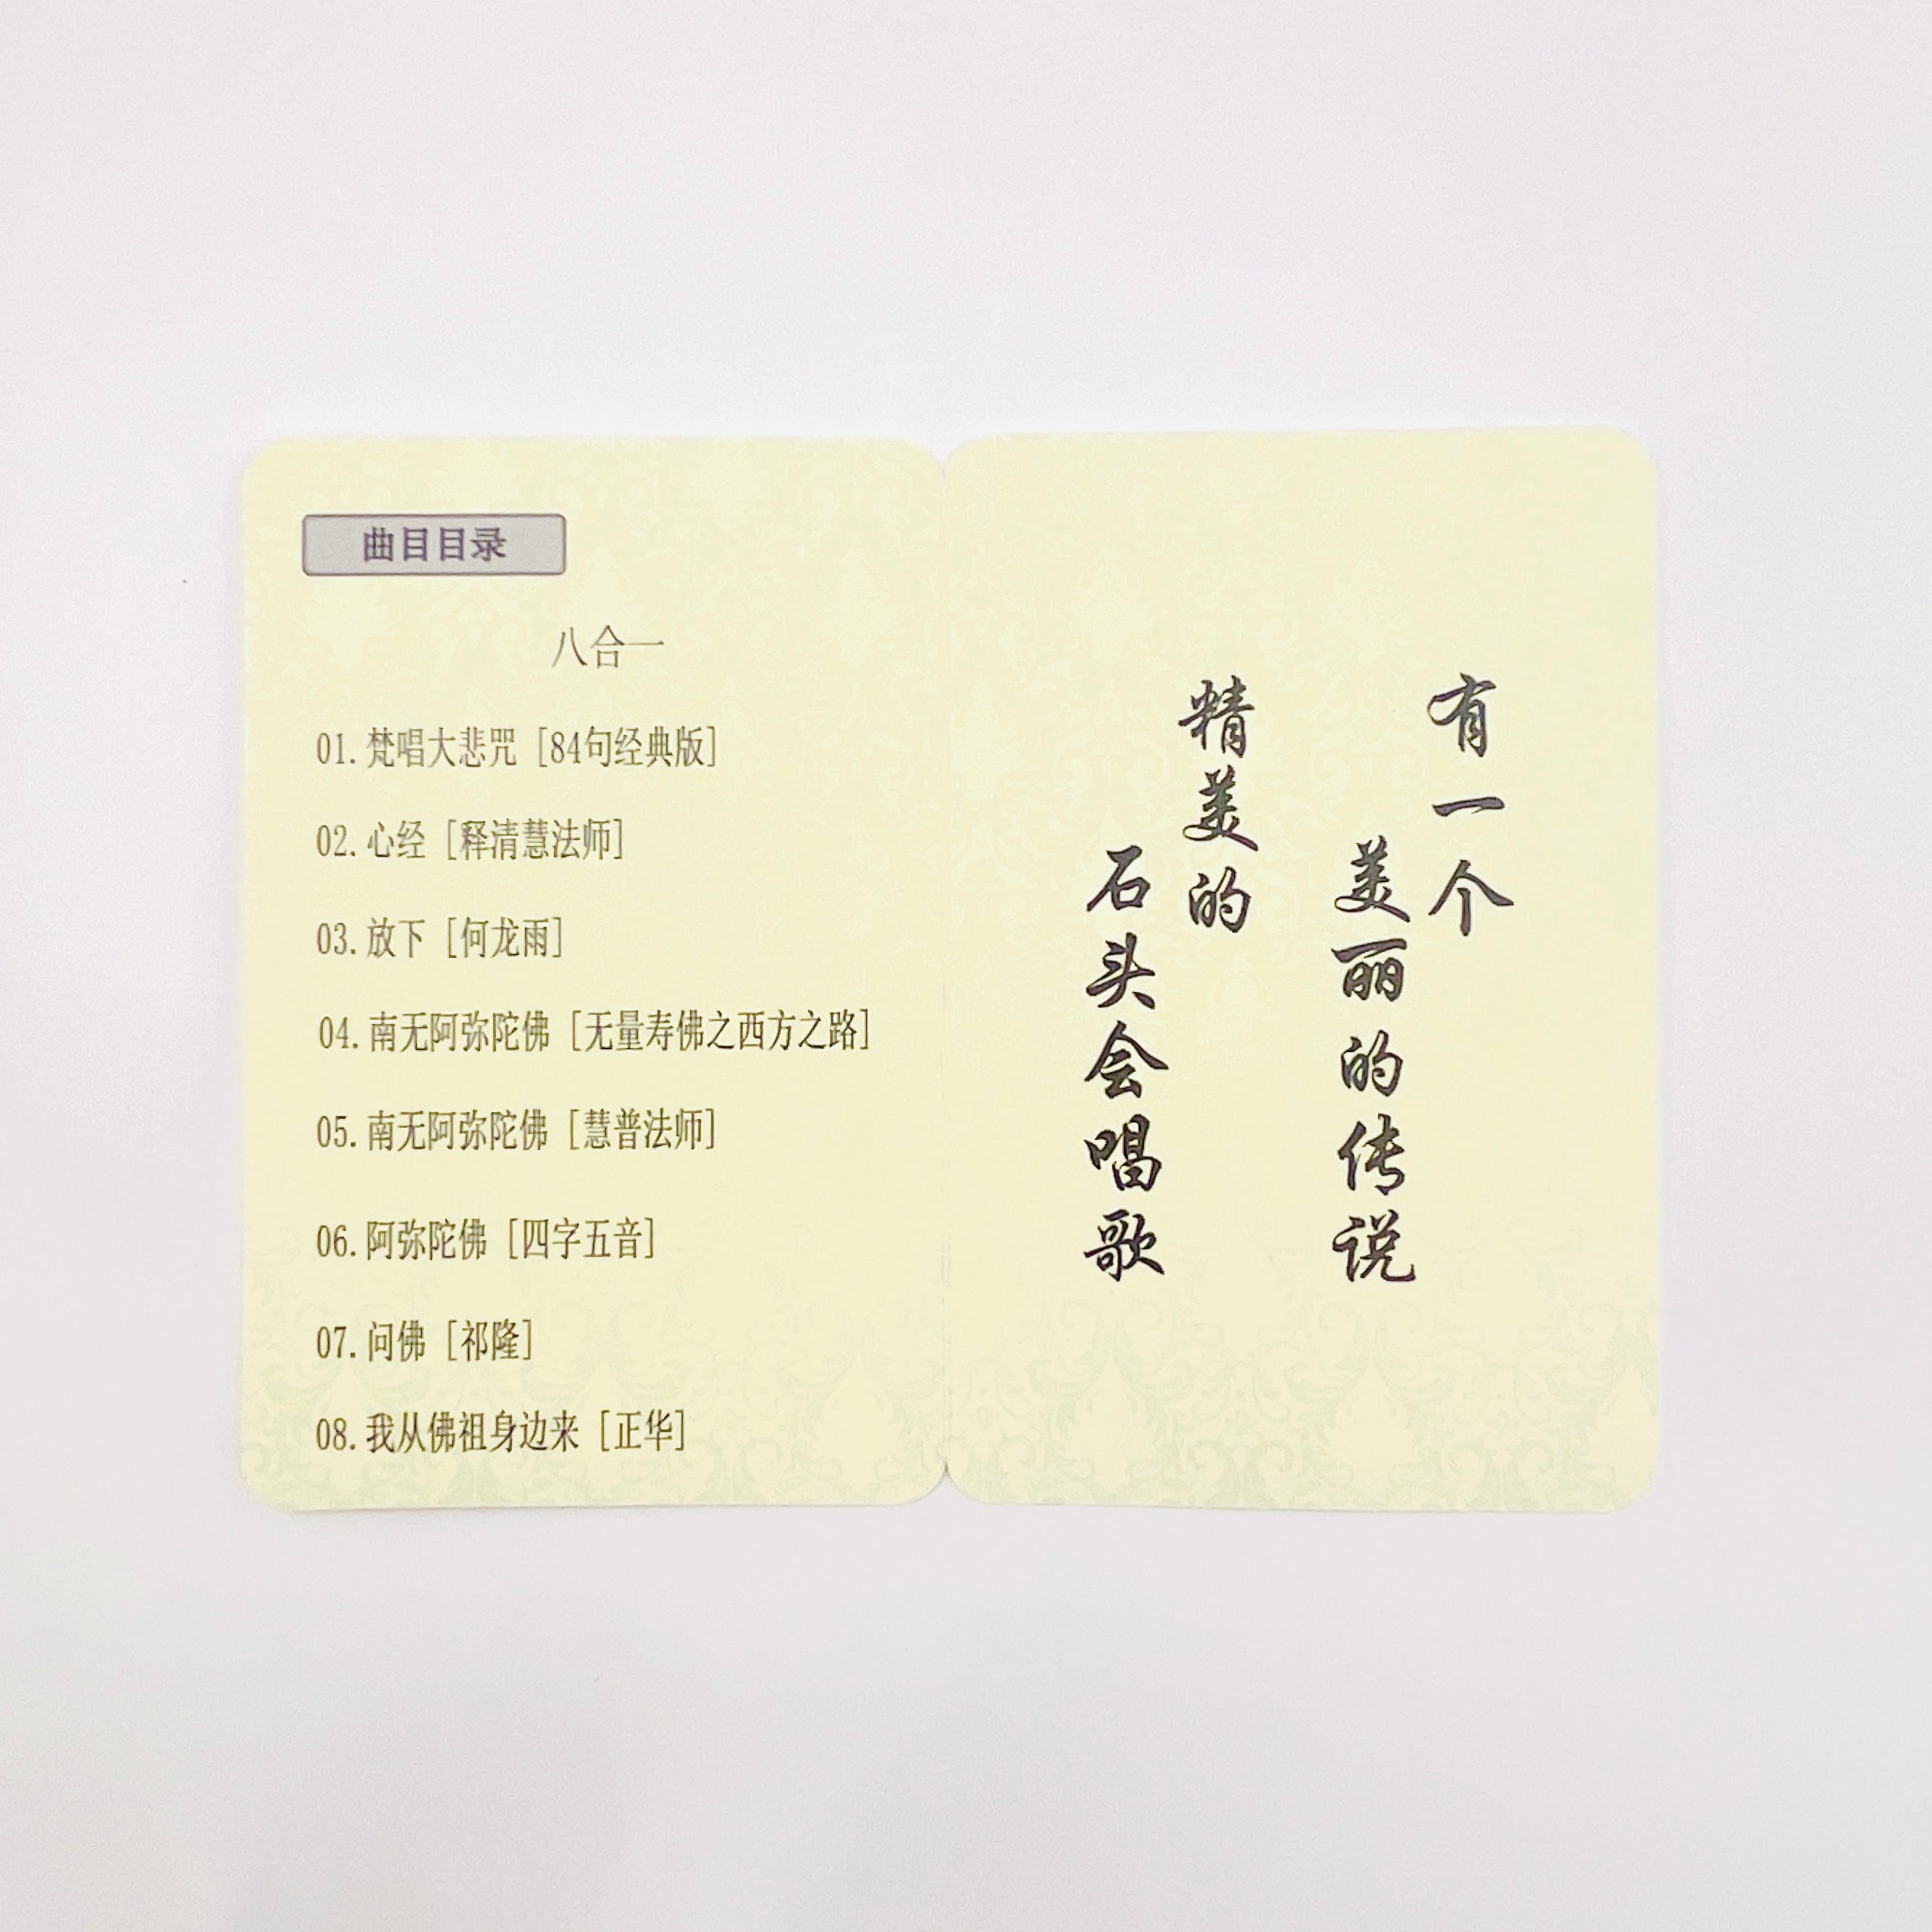 曲目目录
八合一
01.梵唱大悲咒［84句经典版］
02.心经［释清慧法师］
03.放下［何龙雨］
04.南无阿弥陀佛［无量寿佛之西方之路］
05.南无阿弥陀佛［慧普法师］
06.阿弥陀佛［四字五音］
07.问佛［祁隆］
08.我从佛祖身边来［正华］
有一个
美丽的传说
精美的
石头会唱歌